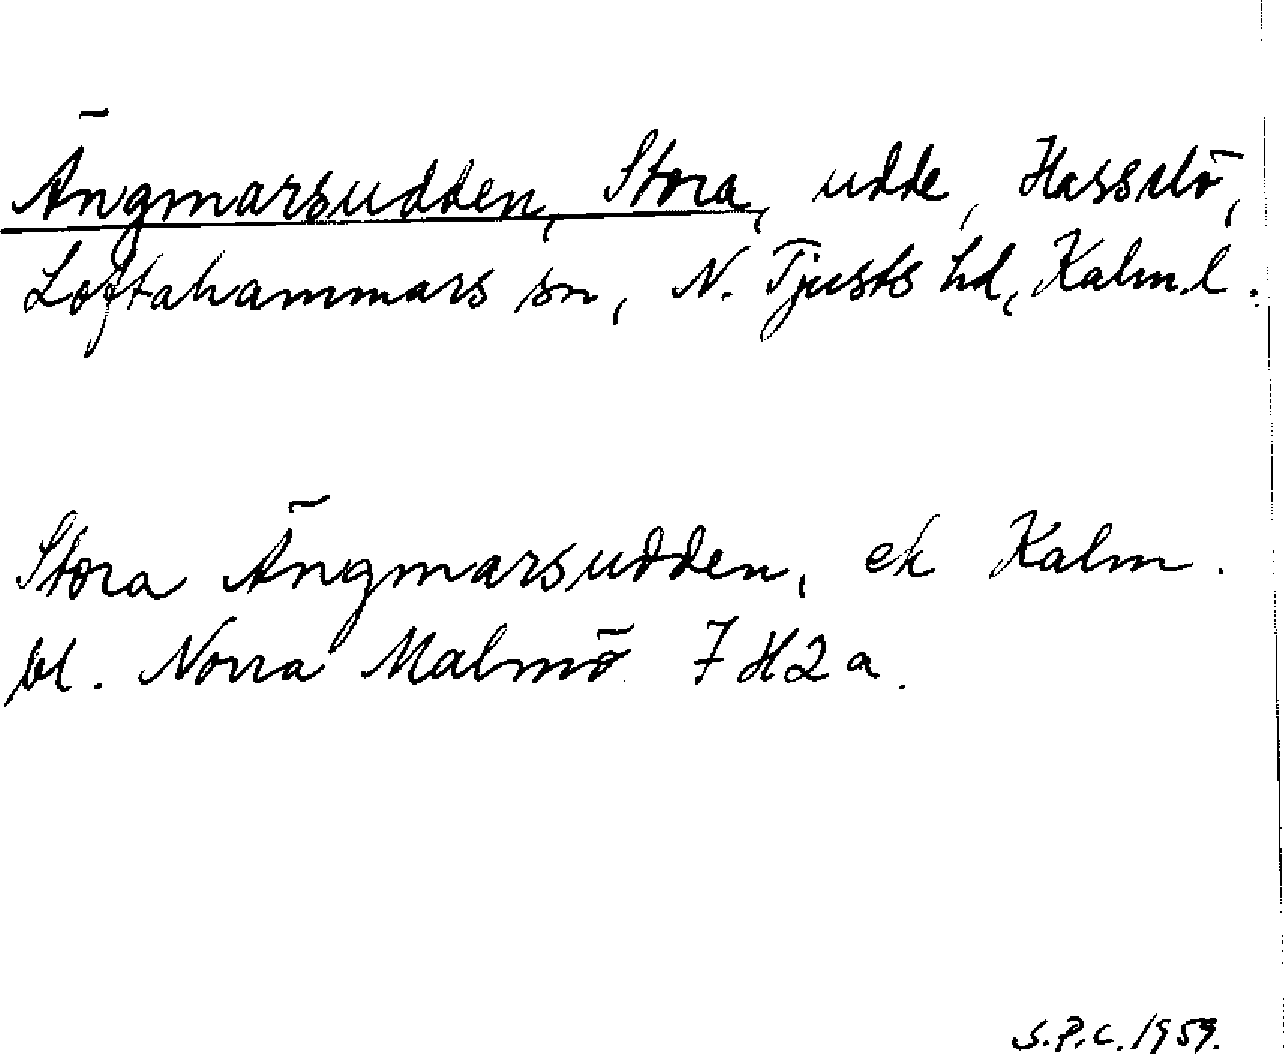 Ängmarsudden, Stora, udde, Hasselö,
Loftahammars sn, N. Tjusts hd, Kalm.l.
Stora Ängmarsudden, ek Kalm.
bl. Norra Malmö 7H2a.
S.P.C. 1959.